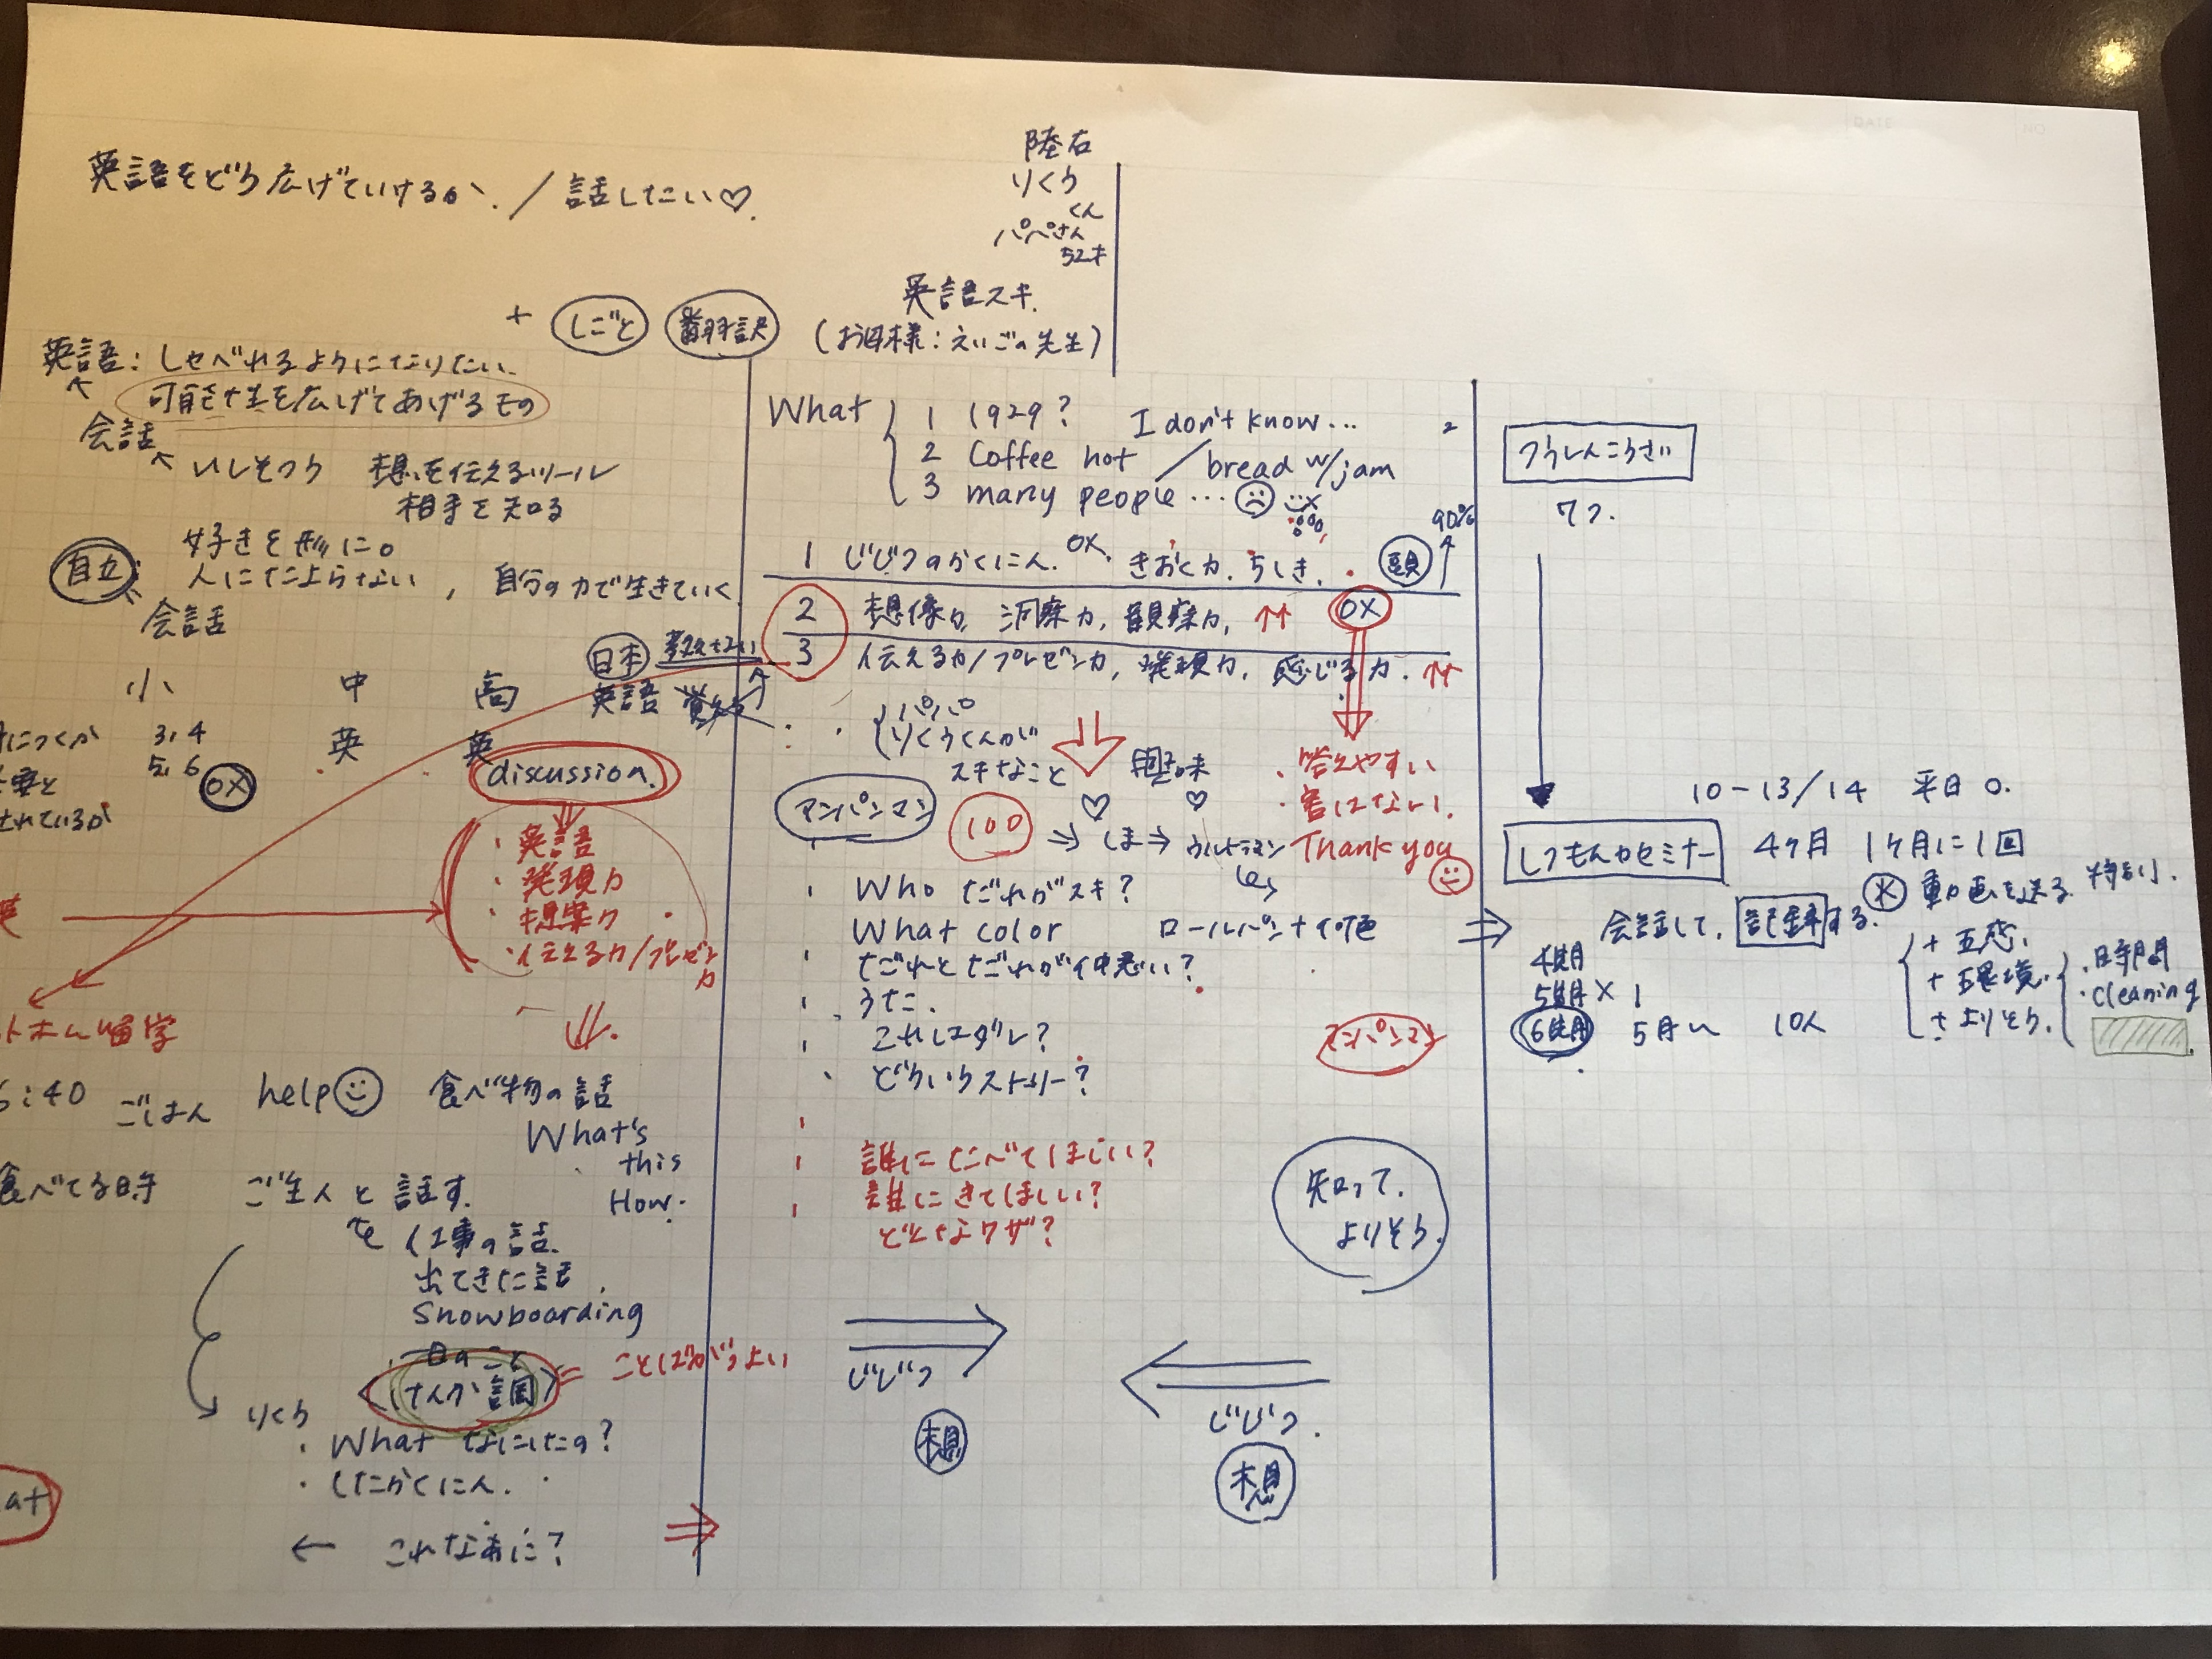 英語をどう広げていけるか、/ 話したい♡.
陸右
りくう
くん
パパさん
52才
英語スキ.
(お母様:えいごの先生)
+ しごと 翻訳
英語:しゃべれるようになりたい.
可能性を広げてあげるもの
会話
いしそつう 想いを伝えるツール
相手を知る
好きを形に。
自立: 人にたよらない, 自分の力で生きていく
会話
日本
小 中 高 英語
につくか 3,4 英 英
5,6 OX
されているか
discussion.
・英語
・発現力
・想案力
・伝えるカ/プレゼン力
ホーム留学
:40 ごはん help 食べ物の話
What's
this
How.
食べてる時 ご主人と話す.
仕事の話.
出てきた話.
Snowboarding
一日のこと
なんか調 ことばがつよい
りくう
・What なにしたの?
・したかくにん.
← これなあに?
at
What 1 1929? I don't know...
2 Coffee hot / bread w/jam
3 many people...
90%
1 じじつのかくにん. OX. きおく力. ちしき. 頭
2 想像力, 洞察力, 観察力, ↑↑ OX
3 伝える力/プレゼン力, 発現力, 感じる力. ↑↑
パパ
りくうくんが
スキなこと 興味
・答えやすい
・害はない.
Thank you
アンパンマン 100 ⇒ しま⇒ ウルトラマン
Who だれがスキ?
What color ロールパン+何色
だれとだれが仲悪い?
うた.
これはダレ?
どういうストーリー?
アンパンマン
誰にたべてほしい?
誰にきてほしい?
どんなワザ?
知って.
よりそう.
じじつ
想
じじつ.
想
つうしんこうざ
7つ.
10-13/14 平日 0.
しつもん力セミナー 4ヶ月 1ヶ月に1回
動画を送る. 特別.
会話して, 記録する.
4使用
5使用 × 1
6使用 5月〜 10人
+ 五感.
+ 環境.
+ よりそう.
・時間
・cleaning